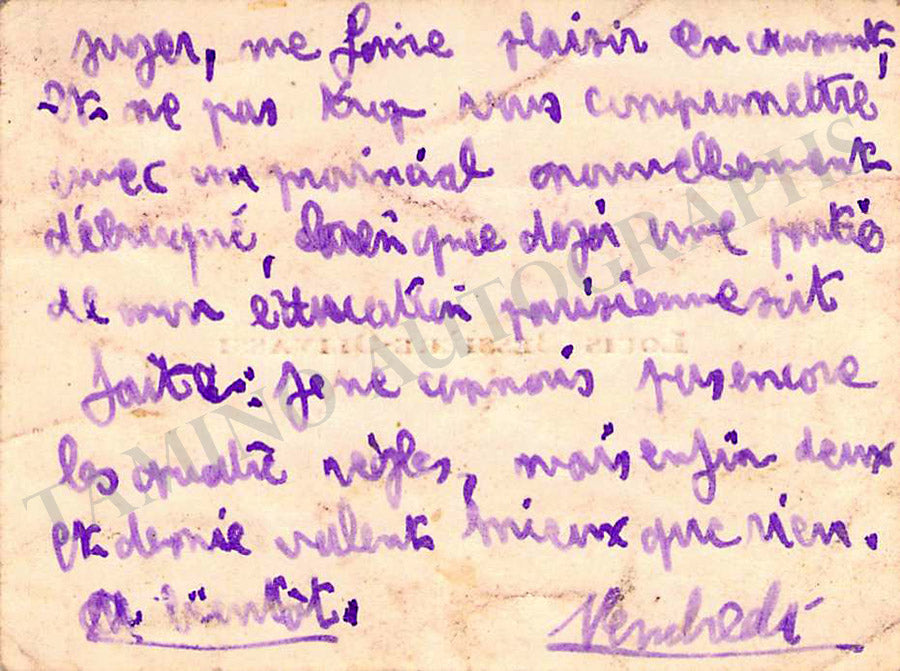 juger, me faire plaisir en causant,
Et ne pas trop vous compromettre
avec un provincial nouvellement
débarqué, bien que dejà une partie
de mon éducation parisienne soit
faite: Je ne connais pas encore
les quatre règles, mais enfin deux
et demie valent mieux que rien.
A bientôt.
Vendredi
TAMINO AUTOGRAPHS